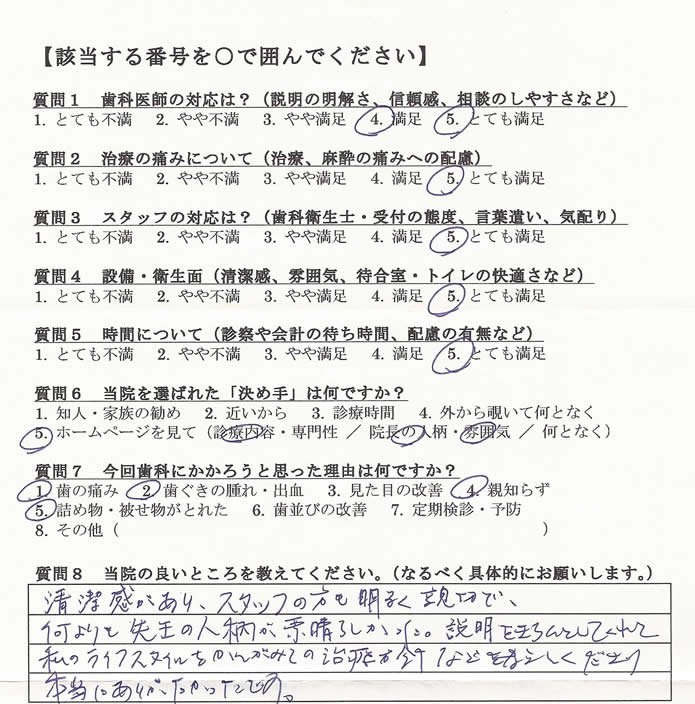 【該当する番号を〇で囲んでください】
質問1 歯科医師の対応は？（説明の明解さ、信頼感、相談のしやすさなど）
1. とても不満 2. やや不満 3. やや満足 4. 満足 5. とても満足
質問2 治療の痛みについて（治療、麻酔の痛みへの配慮）
1. とても不満 2. やや不満 3. やや満足 4. 満足 5. とても満足
質問3 スタッフの対応は？（歯科衛生士・受付の態度、言葉遣い、気配り）
1. とても不満 2. やや不満 3. やや満足 4. 満足 5. とても満足
質問4 設備・衛生面（清潔感、雰囲気、待合室・トイレの快適さなど）
1. とても不満 2. やや不満 3. やや満足 4. 満足 5. とても満足
質問5 時間について（診察や会計の待ち時間、配慮の有無など）
1. とても不満 2. やや不満 3. やや満足 4. 満足 5. とても満足
質問6 当院を選ばれた「決め手」は何ですか？
1. 知人・家族の勧め 2. 近いから 3. 診療時間 4. 外から覗いて何となく
5. ホームページを見て（診療内容・専門性 ／ 院長の人柄・雰囲気 ／ 何となく）
質問7 今回歯科にかかろうと思った理由は何ですか？
1. 歯の痛み 2. 歯ぐきの腫れ・出血 3. 見た目の改善 4. 親知らず
5. 詰め物・被せ物がとれた 6. 歯並びの改善 7. 定期検診・予防
8. その他（ ）
質問8 当院の良いところを教えてください。（なるべく具体的にお願いします。）
清潔感があり、スタッフの方も明るく親切で、
何よりも先生の人柄が素晴らしかった。説明もきちんとしてくれて
私のライフスタイルをかんがみての治療方針など
本当にありがたかったです。